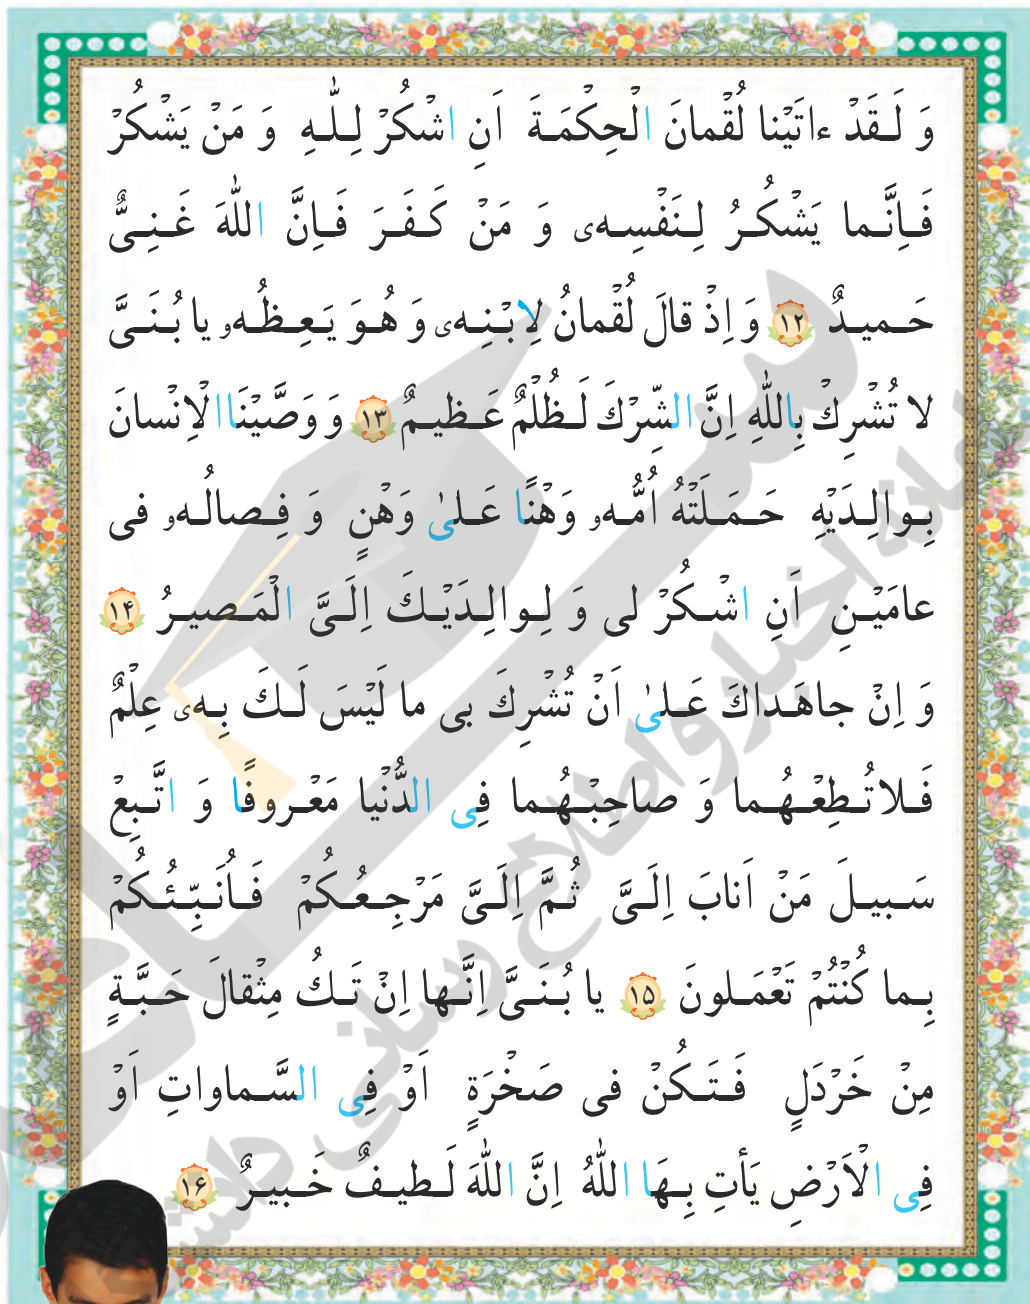 وَ لَـقَدْ ءاتَيْنا لُقْمانَ الْحِكْمَـةَ اَنِ اشْكُرْ لِـلّٰـهِ وَ مَنْ يَشْكُرْ
فَـاِنَّـما يَشْكُـرُ لِـنَفْسِـهٖ وَ مَنْ كَـفَـرَ فَـاِنَّ اللّٰهَ غَـنِـىٌّ
حَـميـدٌ ۱۲ وَ اِذْ قالَ لُقْمانُ لِابْـنِـهٖ وَ هُـوَ يَـعِـظُـهو يا بُـنَـىَّ
لا تُشْرِكْ بِاللّٰهِ اِنَّ الشِّرْكَ لَـظُلْمٌ عَـظيـمٌ ۱۳ وَ وَصَّيْنَا الْاِنْسانَ
بِـوالِـدَيْهِ حَـمَـلَتْهُ اُمُّـهو وَهْنًا عَـلىٰ وَهْنٍ وَ فِـصالُـهو فى
عامَيْـنِ اَنِ اشْـكُرْ لى وَ لِـوالِـدَيْـكَ اِلَـىَّ الْمَـصيـرُ ۱۴
وَ اِنْ جاهَـداكَ عَـلىٰ اَنْ تُشْرِكَ بى ما لَيْسَ لَـكَ بِـهٖ عِلْمٌ
فَـلا تُـطِعْـهُـما وَ صاحِبْـهُـما فِى الدُّنْيا مَعْـروفًا وَ اتَّـبِعْ
سَـبيـلَ مَنْ اَنابَ اِلَـىَّ ثُـمَّ اِلَـىَّ مَرْجِـعُـكُمْ فَـاُنَـبِّـئُـكُمْ
بِـما كُنْتُمْ تَعْمَـلونَ ۱۵ يا بُـنَـىَّ اِنَّـها اِنْ تَـكُ مِثْقالَ حَـبَّـةٍ
مِنْ خَرْدَلٍ فَـتَـكُنْ فى صَخْرَةٍ اَوْ فِى السَّـماواتِ اَوْ
فِى الْاَرْضِ يَأتِ بِـهَا اللّٰهُ اِنَّ اللّٰهَ لَـطيـفٌ خَـبيـرٌ ۱۶